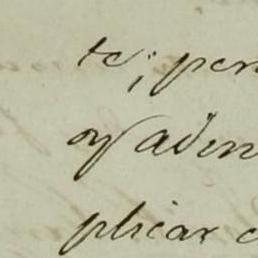 te; per
oy aden
plicar c